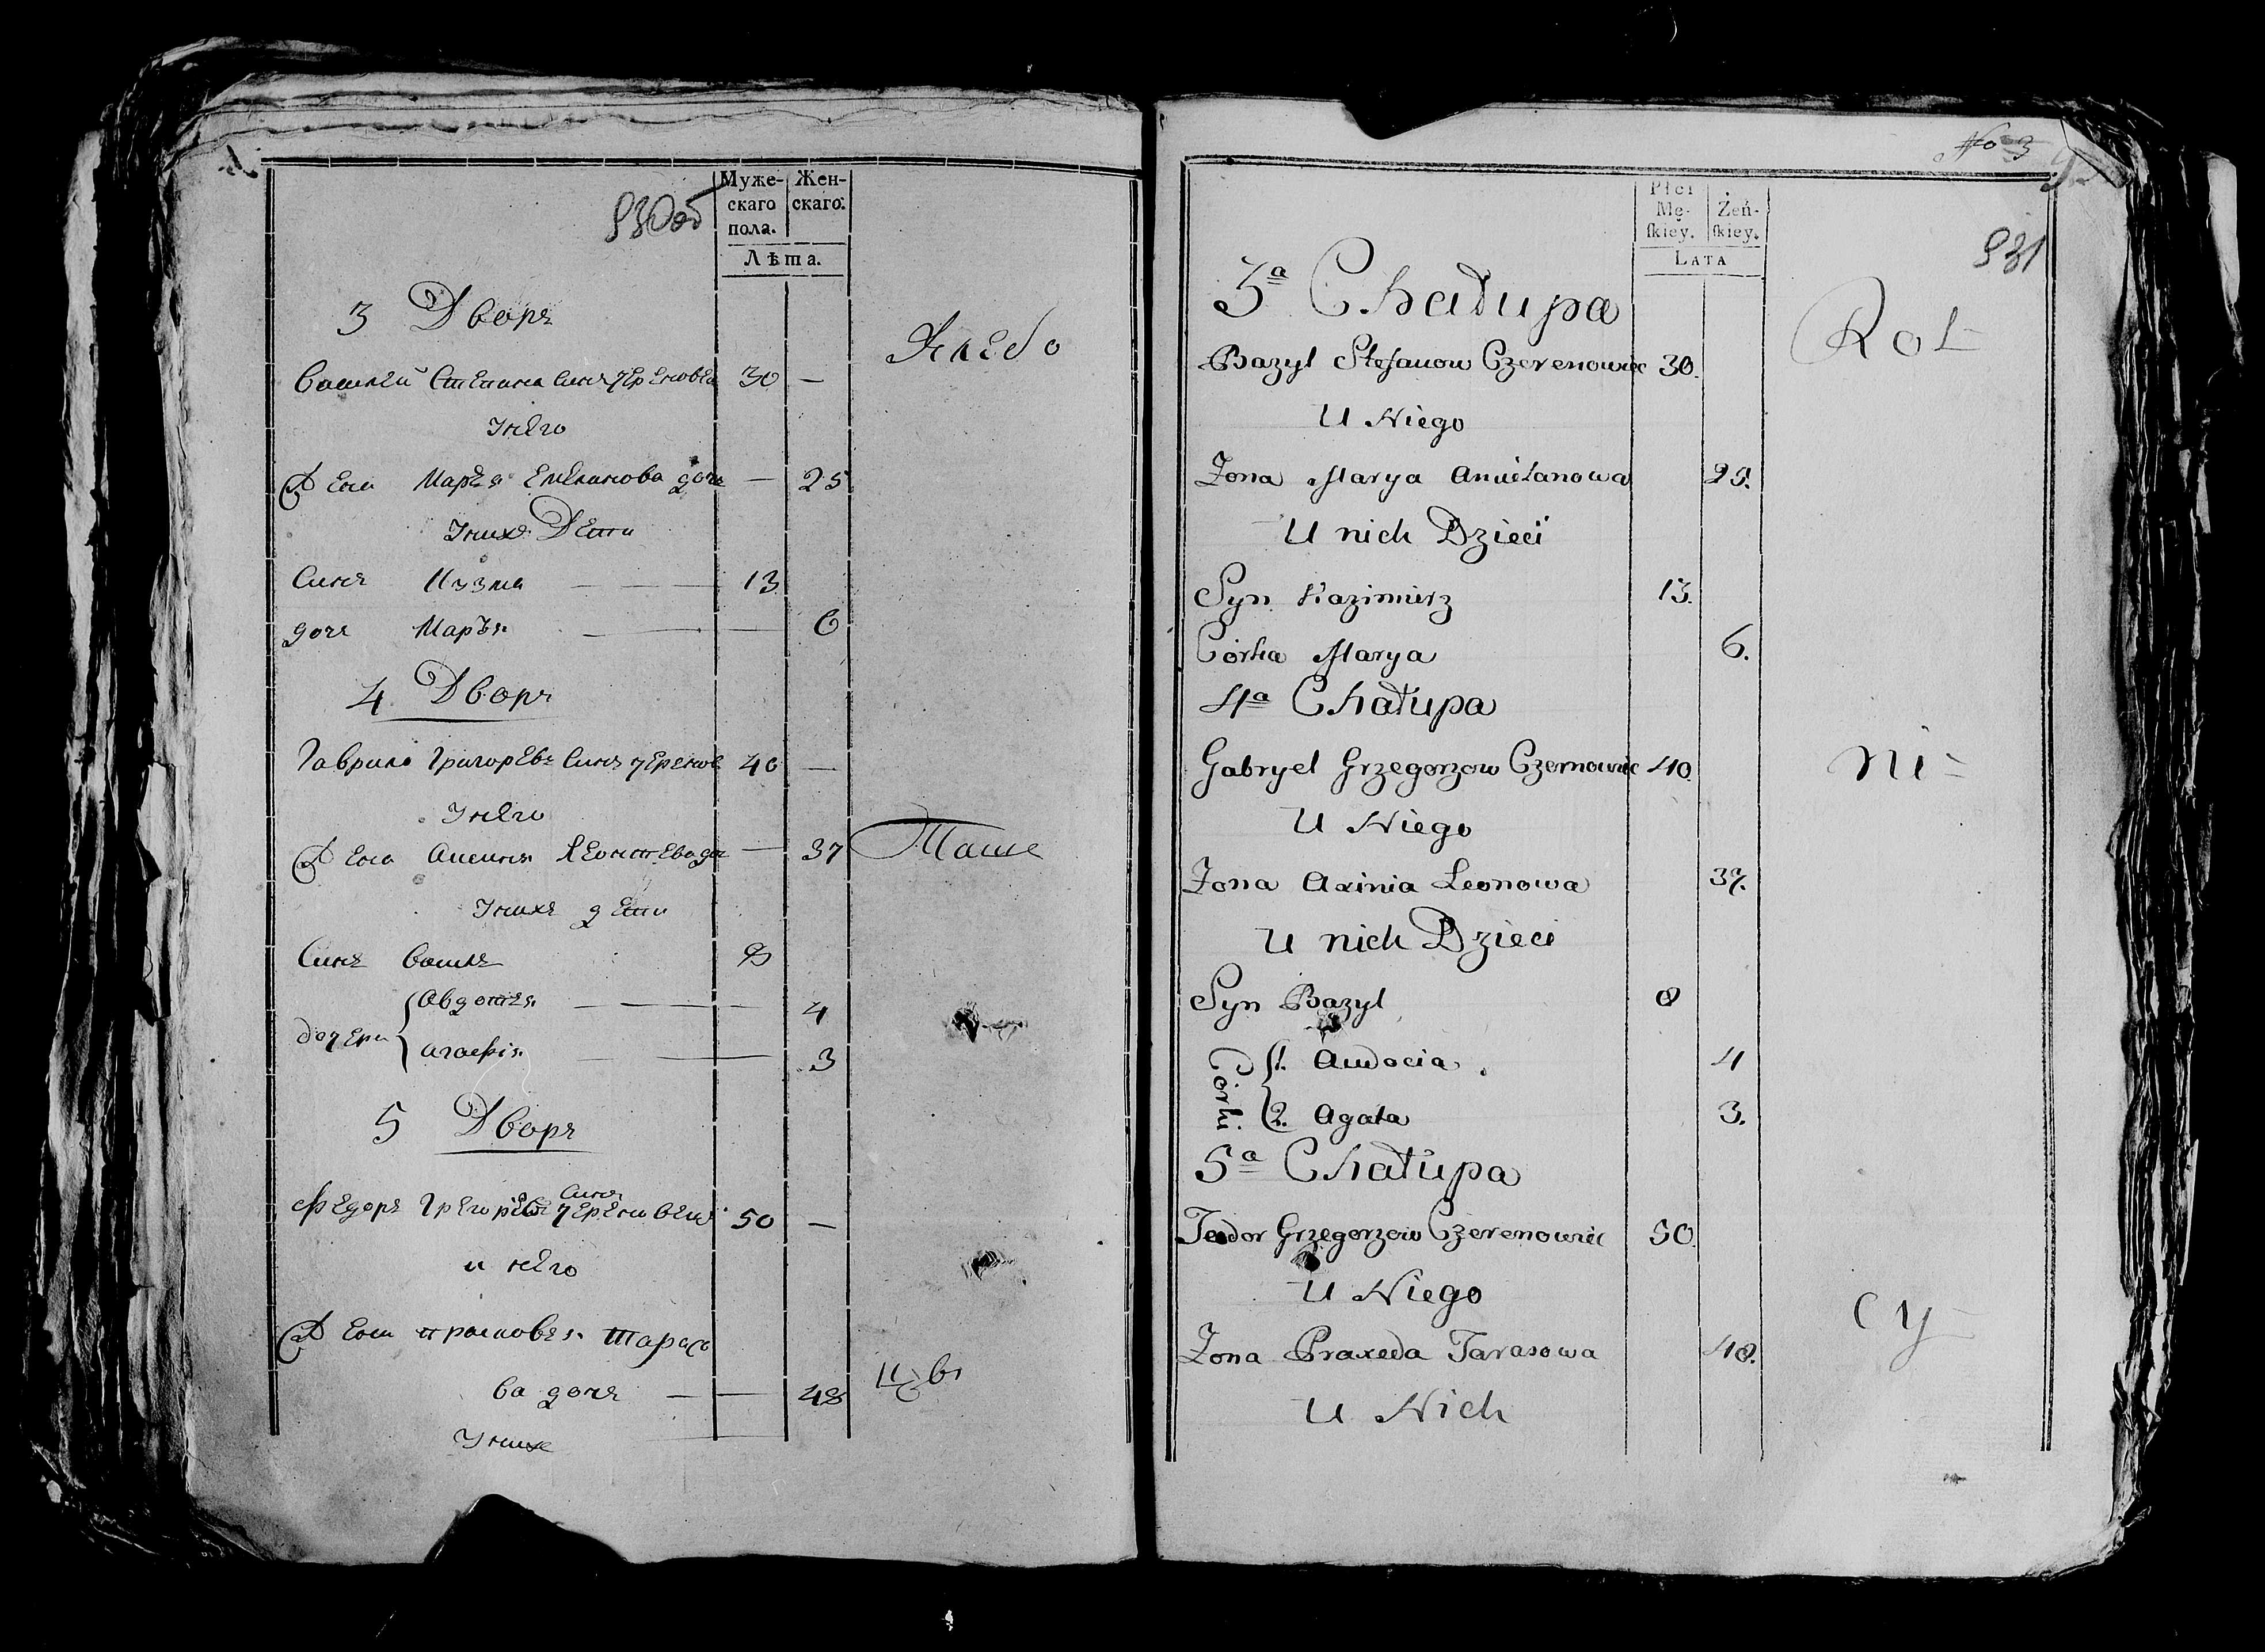 930об
Муже-
скаго
пола.
Жен-
скаго.
Лѣта.
3 Дворъ
Василей Степина Синъ Череновец 30 —
Унего
Жена Марѣя Емелянова дочь — 25
Унихъ Дети
Синъ Кузма 13
дочъ Маръя 6
4 Дворъ
Гаврило Григоревъ Синъ Черенов 40 —
Унего
Жена Аксиня Леонтева до — 37
Унихъ дети
Синъ Василъ 8
дочери
Авдотъя 4
Агафія 3
5 Дворъ
Синъ
Федоръ Грегориевъ Череновец 50 —
и него
Жена прасковъя Тарасо
ва дочъ — 48
Унихъ
Хлебо
Паше
цъ
No 3
931
Płci
Mę-
ſkiey.
Żeń-
ſkiey.
LATA
3a Chałupa
Bazyl Stefanow Czerenowiec 30.
U Niego
Zona Marya Amielanowa 25.
U nich Dzieci
Syn Kazimierz 13.
Córka Marya 6.
4a Chałupa
Gabryel Grzegorzow Czernowiec 40.
U Niego
Zona Axinia Leonowa 37.
U nich Dzieci
Syn Bazyl 8
Córki
1. Audocia 4
2. Agata 3.
5a Chałupa
Teodor Grzegorzow Czerenowiec 50.
U Niego
Zona Praxeda Tarasowa 48.
U Nich
Rol-
ni-
cy